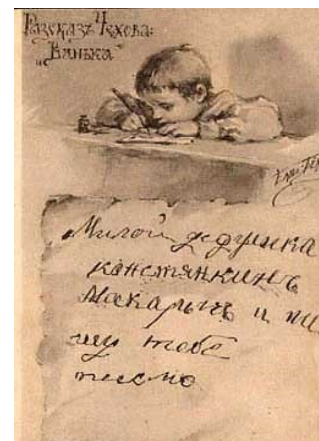 Разсказъ Чехова:
„Ванька“
Милой дедушка
канстянкинъ
Макарычъ и пи
шу тебе
письмо